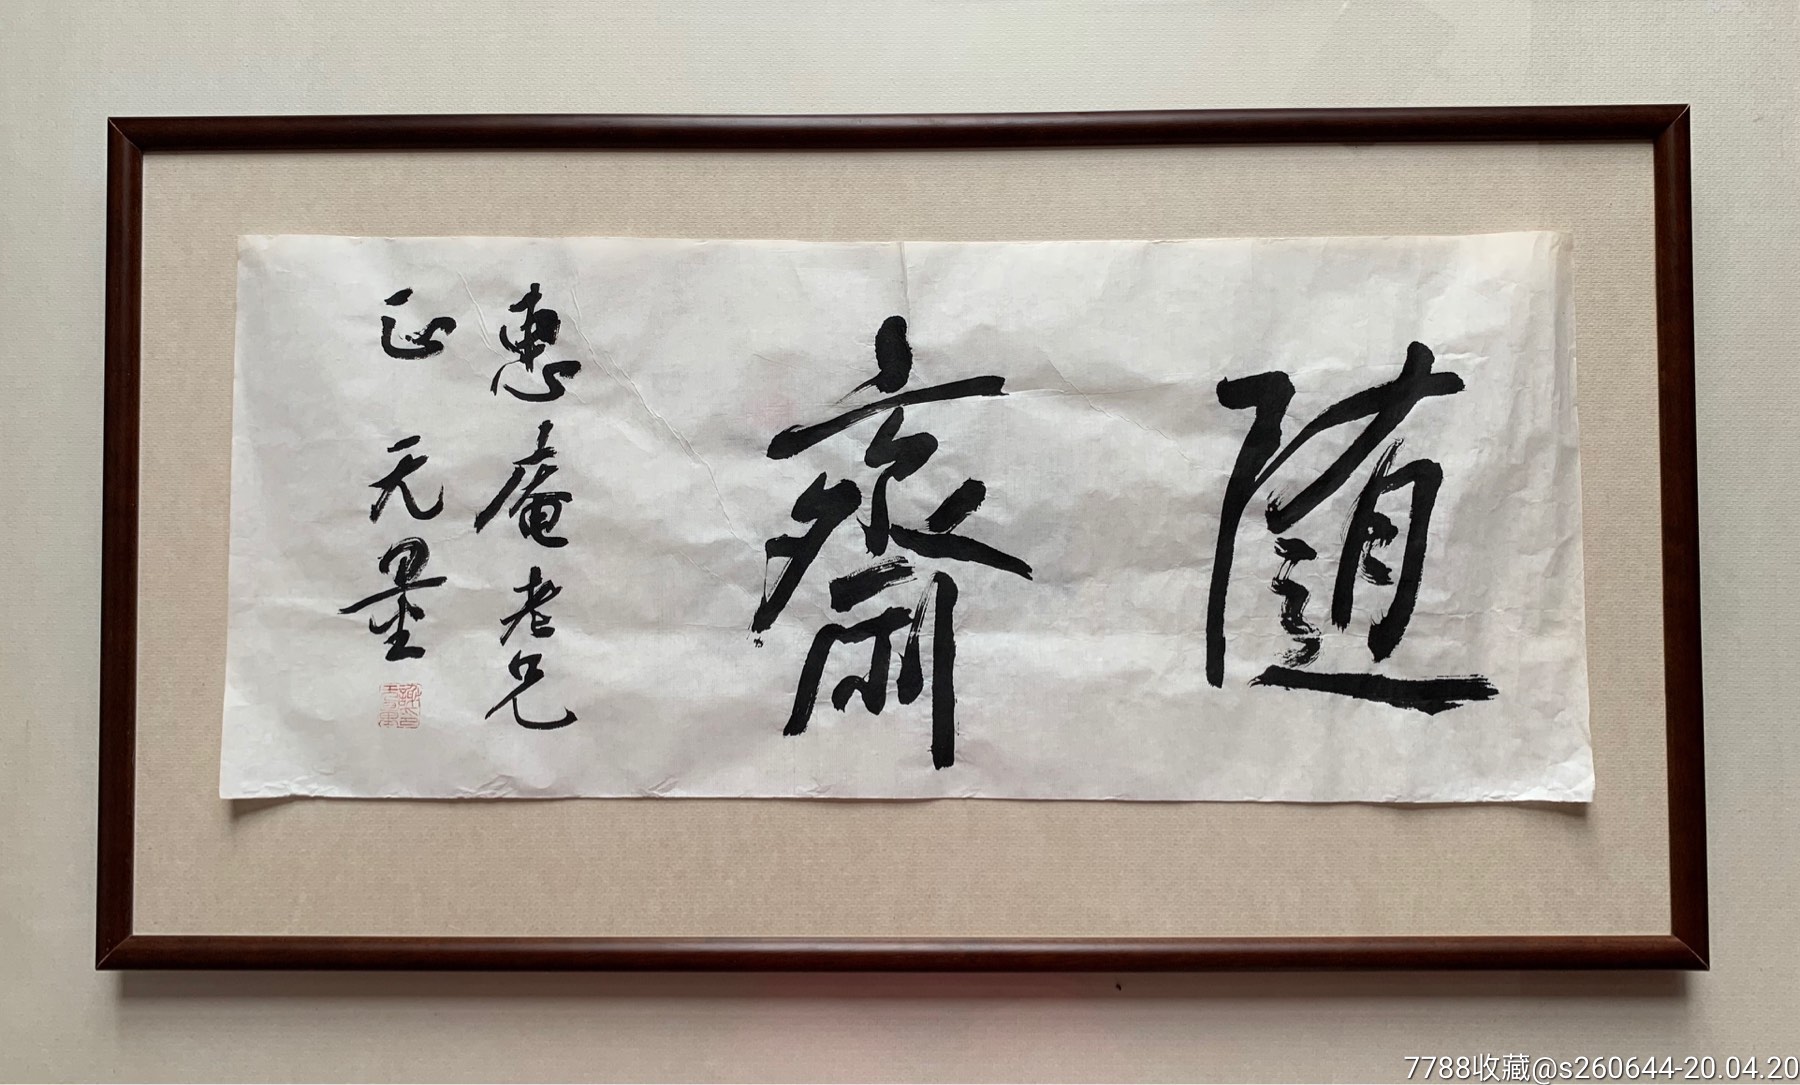 随齋
惠庵老兄
正 无量
7788收藏@s260644-20.04.20